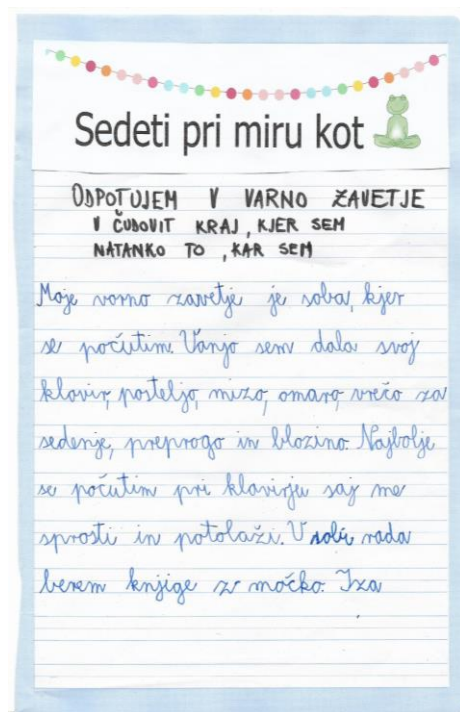 Sedeti pri miru kot
ODPOTUJEM V VARNO ZAVETJE
V ČUDOVIT KRAJ, KJER SEM
NATANKO TO, KAR SEM
Moje varno zavetje je soba, kjer
se počutim. Vanjo sem dala svoj
klavir, posteljo, mizo, omaro, vrečo za
sedenje, preprogo in blazino. Najbolje
se počutim pri klavirju saj me
sprosti in potolaži. V sobi rada
berem knjige z mačko. Iza